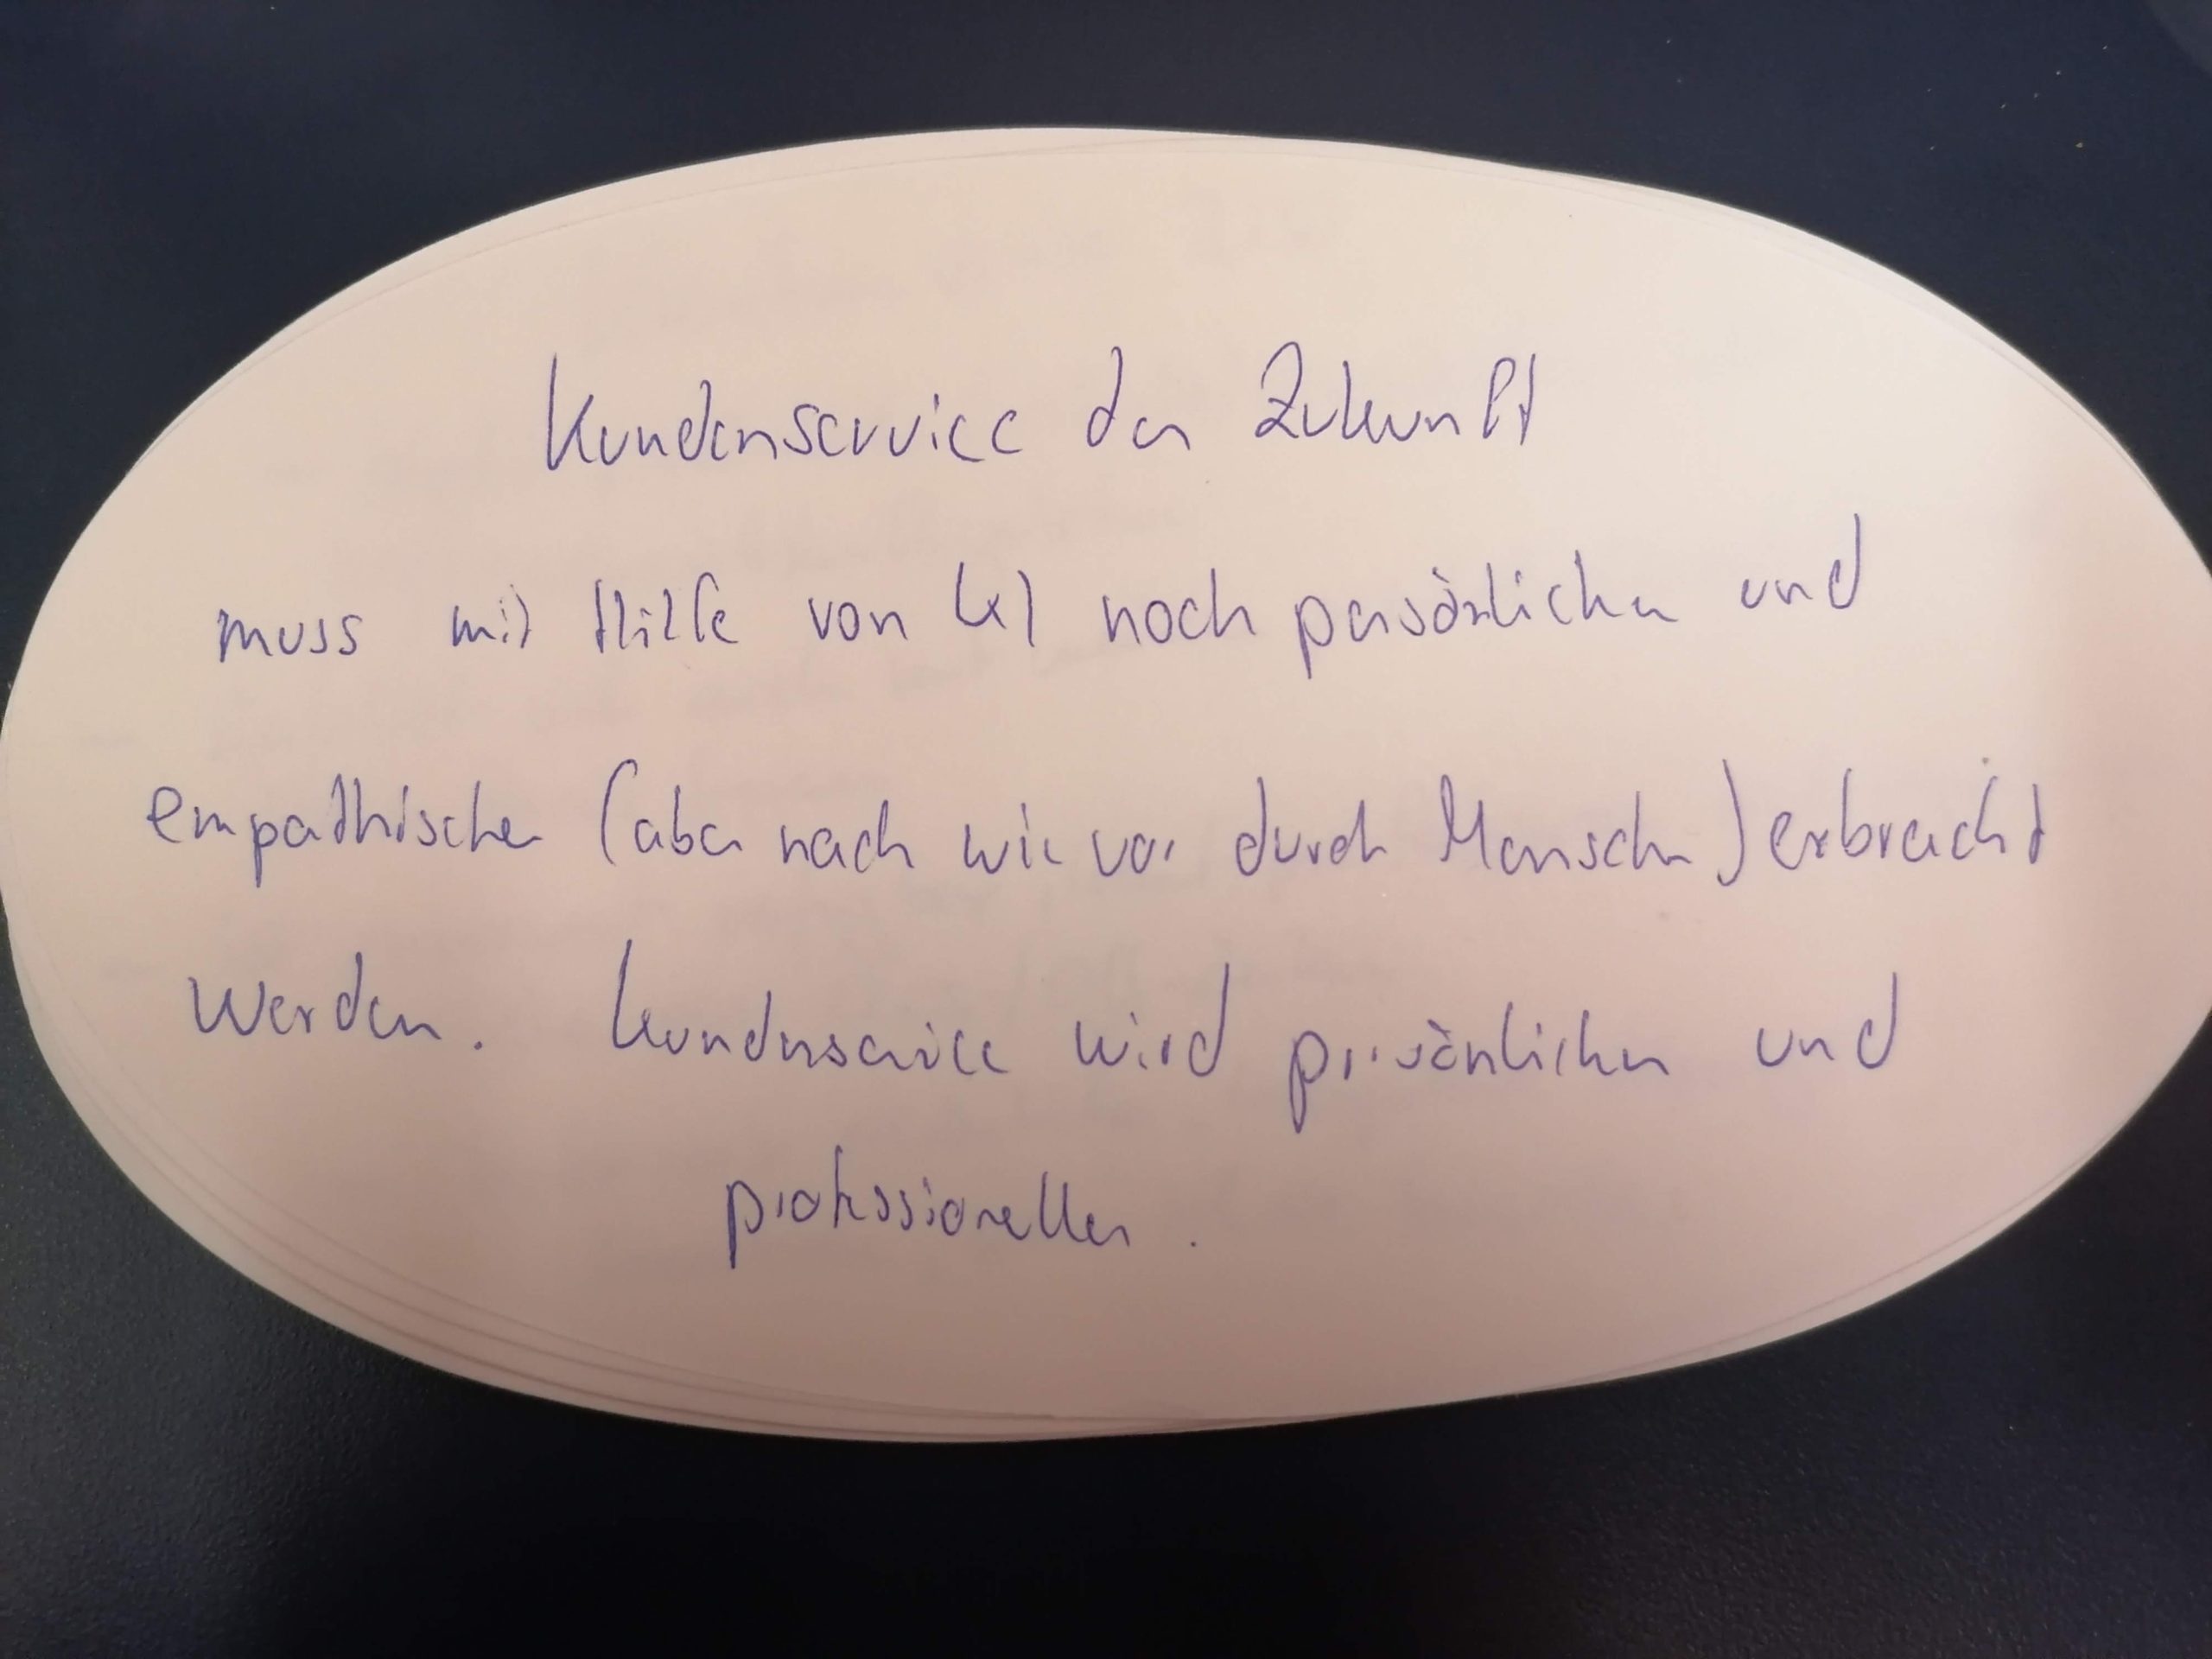 Kundenservice der Zukunft
muss mit Hilfe von KI noch persönlicher und
empathischer (aber nach wie vor durch Menschen) erbracht
werden. Kundenservice wird persönlicher und
professioneller.